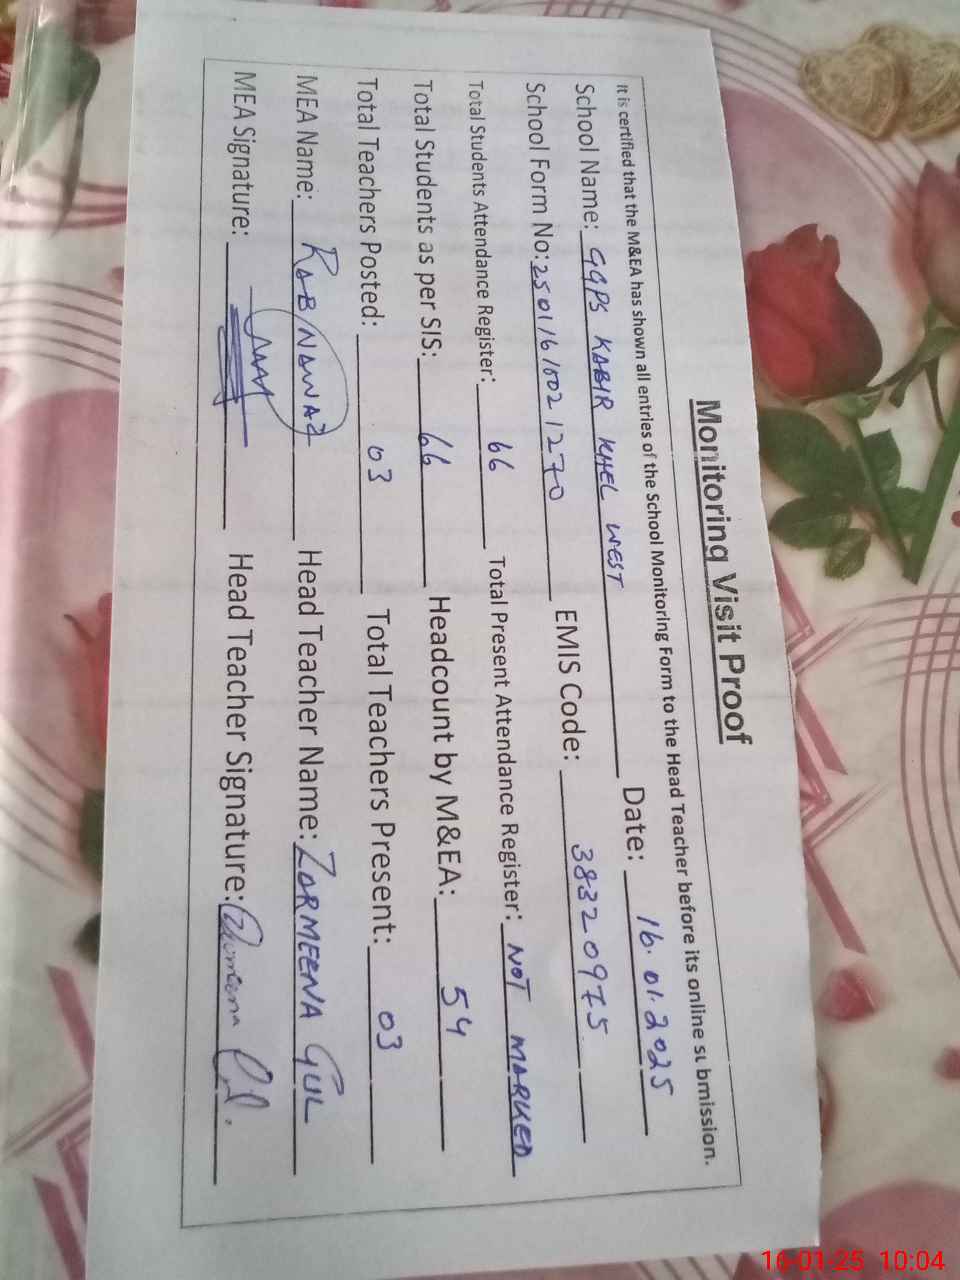 Monitoring Visit Proof
It is certified that the M&EA has shown all entries of the School Monitoring Form to the Head Teacher before its online submission.
School Name: GGPS KABIR KHEL WEST Date: 16.01.2025
School Form No: 25011610021270 EMIS Code: 38320975
Total Students Attendance Register: 66 Total Present Attendance Register: NOT MARKED
Total Students as per SIS: 66 Headcount by M&EA: 54
Total Teachers Posted: 03 Total Teachers Present: 03
MEA Name: RAB NAWAZ Head Teacher Name: ZARMEENA GUL
MEA Signature: Head Teacher Signature:
16-01-25 10:04